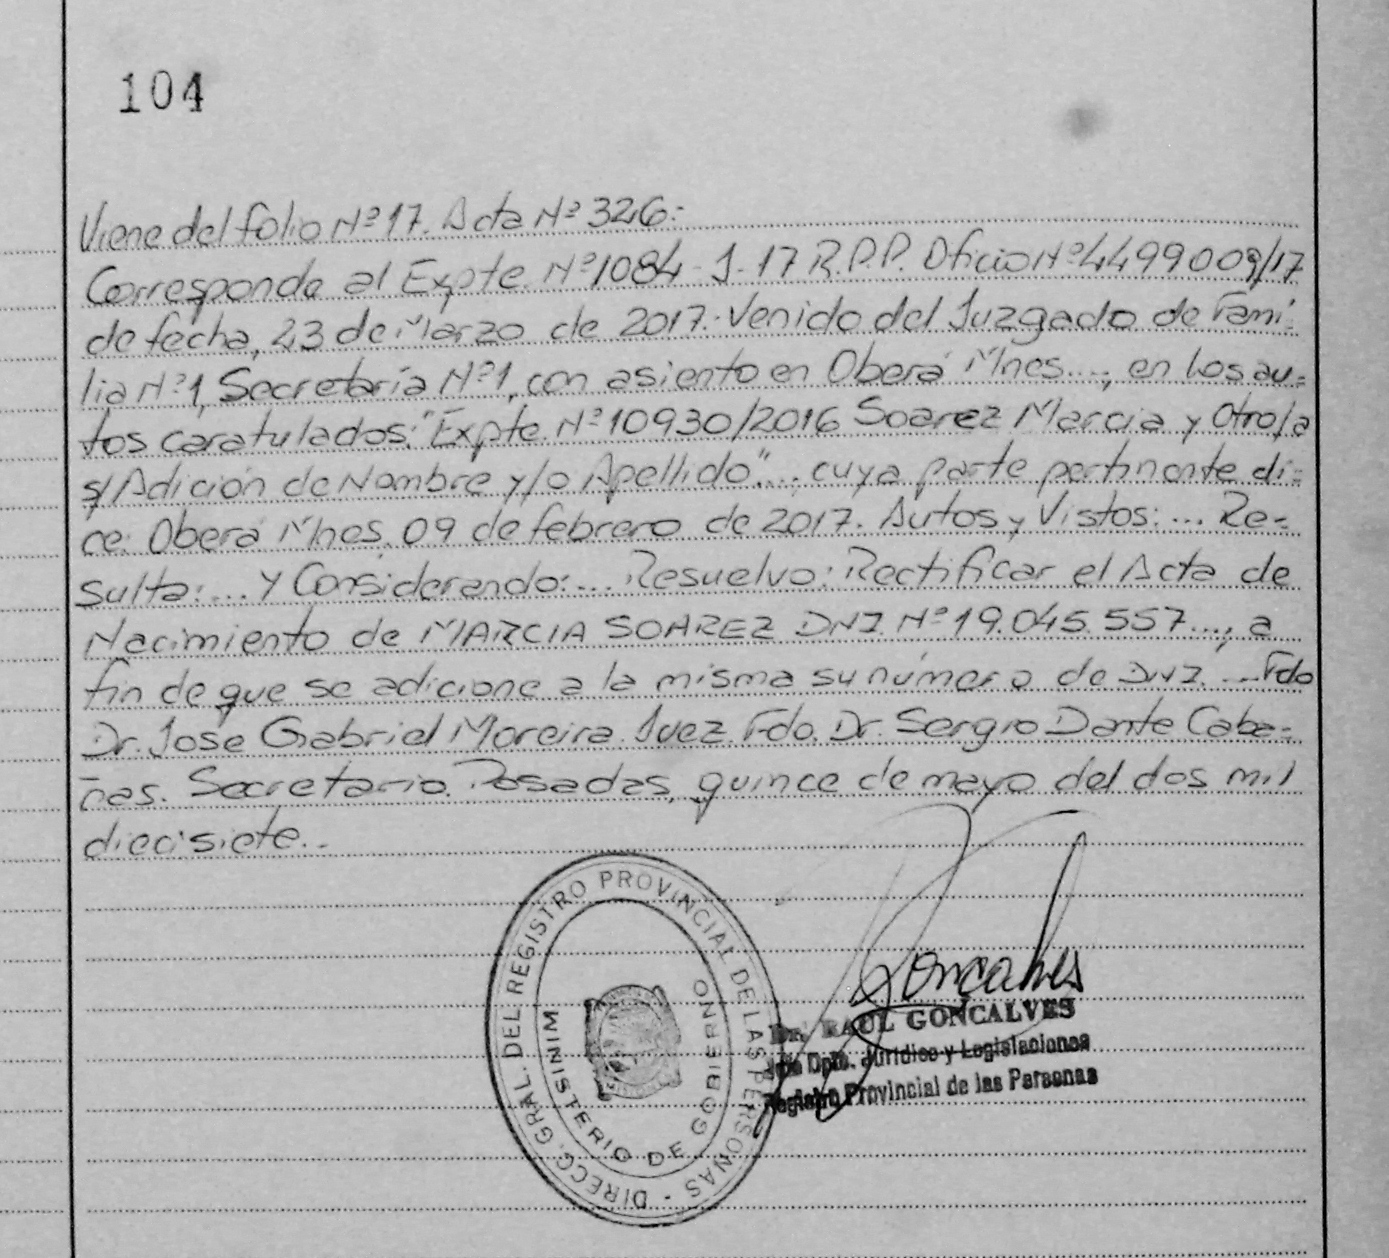 104
Viene del folio Nº 17. Acta Nº 326:
Corresponde al Expte. Nº 1084-J-17 R.P.P. Oficio Nº 4499009/17
de fecha, 23 de Marzo de 2017. Venido del Juzgado de Fami-
lia Nº 1, Secretaría Nº 1, con asiento en Oberá Mnes..., en los au=
tos caratulados: "Expte. Nº 10930/2016 Soarez Marcia y Otro/a
s/Adición de Nombre y/o Apellido"..., cuya parte pertinente di=
ce: Oberá Mnes. 09 de febrero de 2017. Autos y Vistos:... Re-
sulta:... Y Considerando:... Resuelvo: Rectificar el Acta de
Nacimiento de MARCIA SOAREZ DNI Nº 19.045.557..., a
fin de que se adicione a la misma su número de DNI ... Fdo
Dr. José Gabriel Moreira. Juez Fdo. Dr. Sergio Dante Caba-
ñas. Secretario. Posadas, quince de mayo del dos mil
diecisiete..
DIRECC. GRAL. DEL REGISTRO PROVINCIAL DE LAS PERSONAS -
MINISTERIO DE GOBIERNO
Goncalves
Dr. RAUL GONCALVES
Jefe Dpto. Jurídico y Legislaciones
Registro Provincial de las Personas